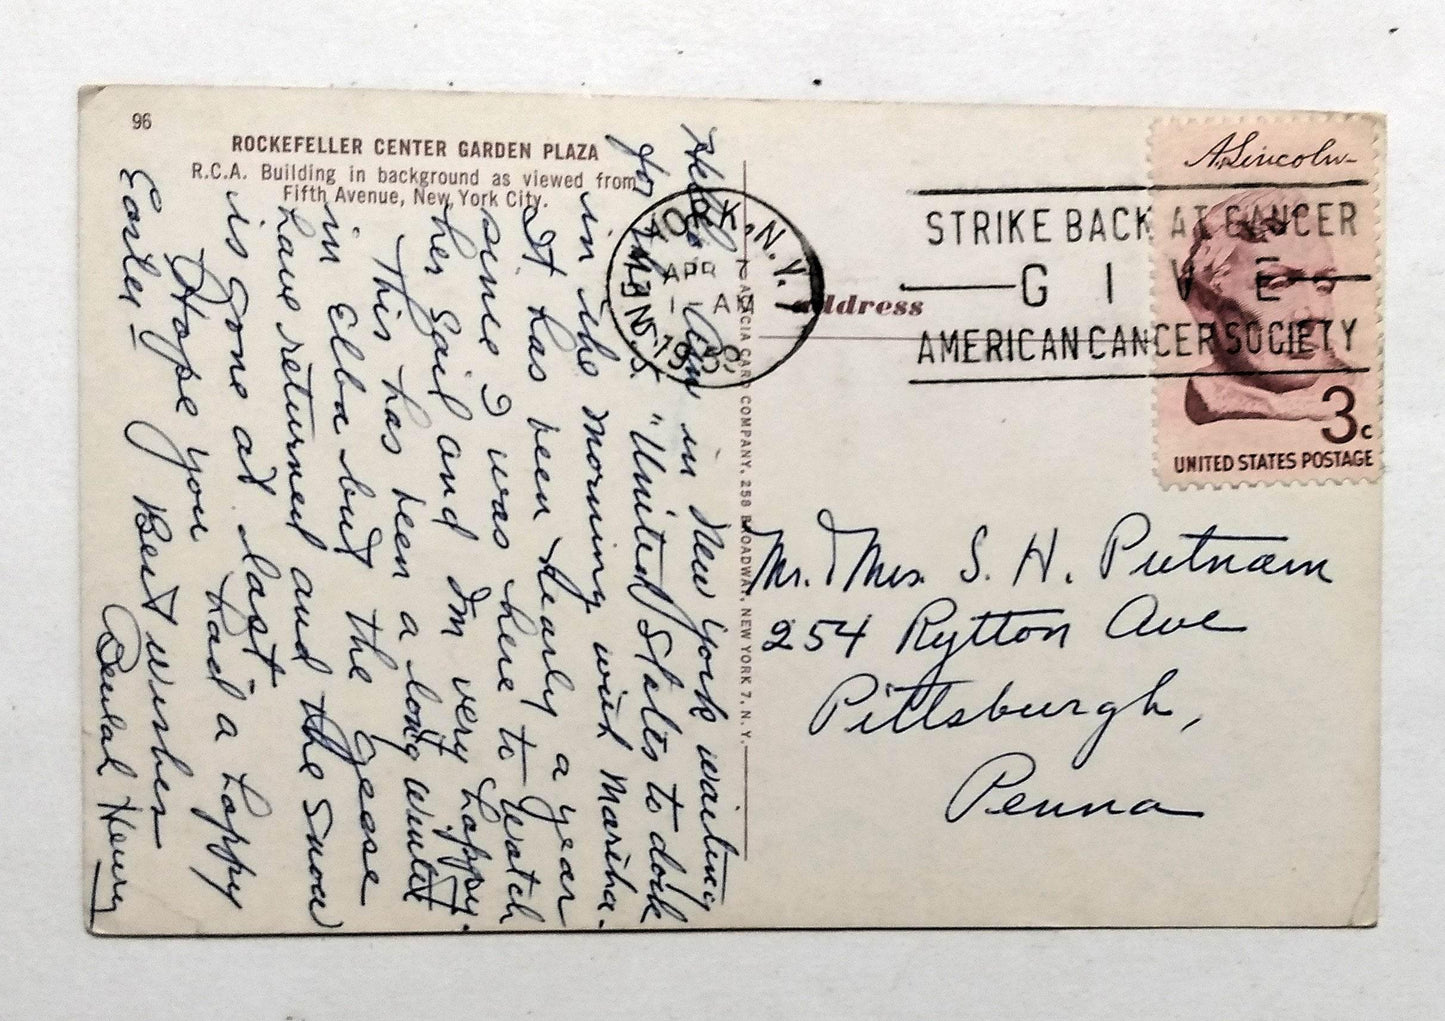 96
ROCKEFELLER CENTER GARDEN PLAZA
R.C.A. Building in background as viewed from
Fifth Avenue, New York City.
Hello Am in New York waiting
for the S.S. "United States to dock
in the morning with Marsha.
It has been nearly a year
since I was here to watch
her sail and I'm very happy.
This has been a long winter
in Elba but the geese
have returned and the snow
is gone at last
Hope you had a happy
Easter – Best wishes
Beulah Henry
ACACIA CARD COMPANY, 258 BROADWAY, NEW YORK 7, N.Y.
address
K, N.Y. 1
APR 7
1 AM
1958
STRIKE BACK AT CANCER
GIVE
AMERICAN CANCER SOCIETY
A. Lincoln
3c
UNITED STATES POSTAGE
Mr. & Mrs. S. H. Putnam
254 Rytton Ave
Pittsburgh,
Penna